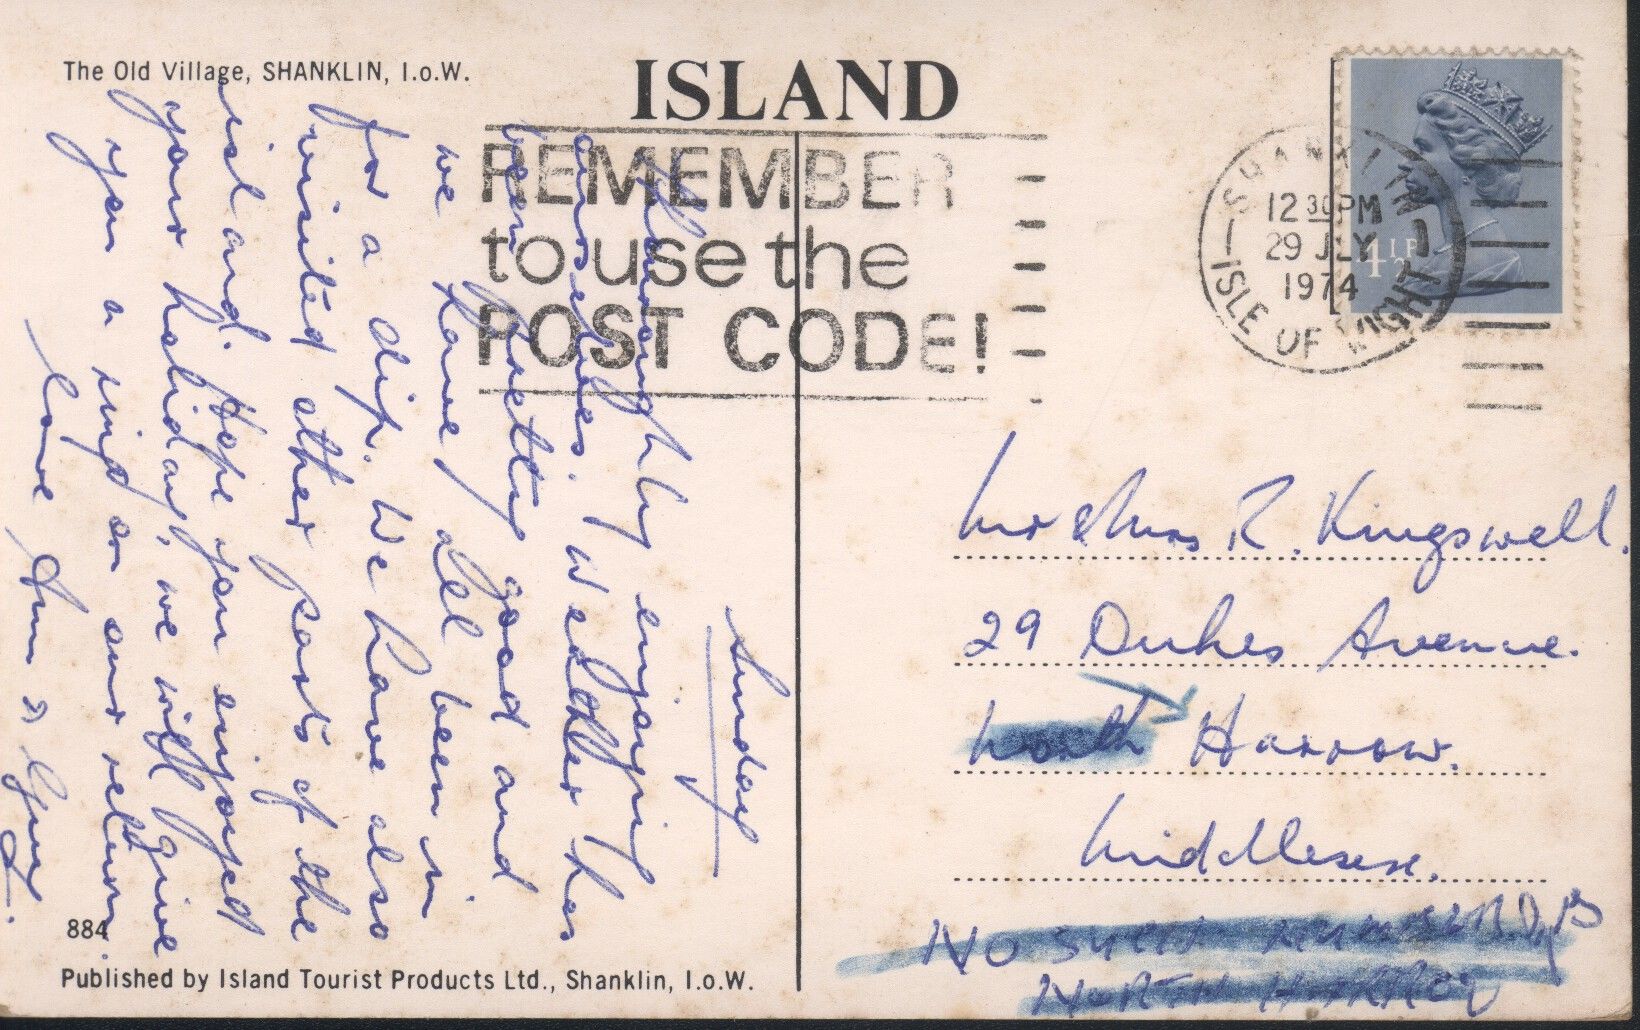 The Old Village, SHANKLIN, I.o.W.
ISLAND
REMEMBER
to use the
POST CODE!
SHANKLIN
12 30 PM
29 JLY
1974
ISLE OF WIGHT
4½P
Sunday
Thoroughly enjoying
ourselves. Weather has
been pretty good and
we have all been in
for a dip. We have also
visited other parts of the
island. Hope you enjoyed
your holiday, we will give
you a ring on our return.
Love
Mr & Mrs R. Kingswell.
29 Dukes Avenue.
North Harrow.
Middlesex.
NO SUCH NUMBER
NORTH HARROW
884
Published by Island Tourist Products Ltd., Shanklin, I.o.W.